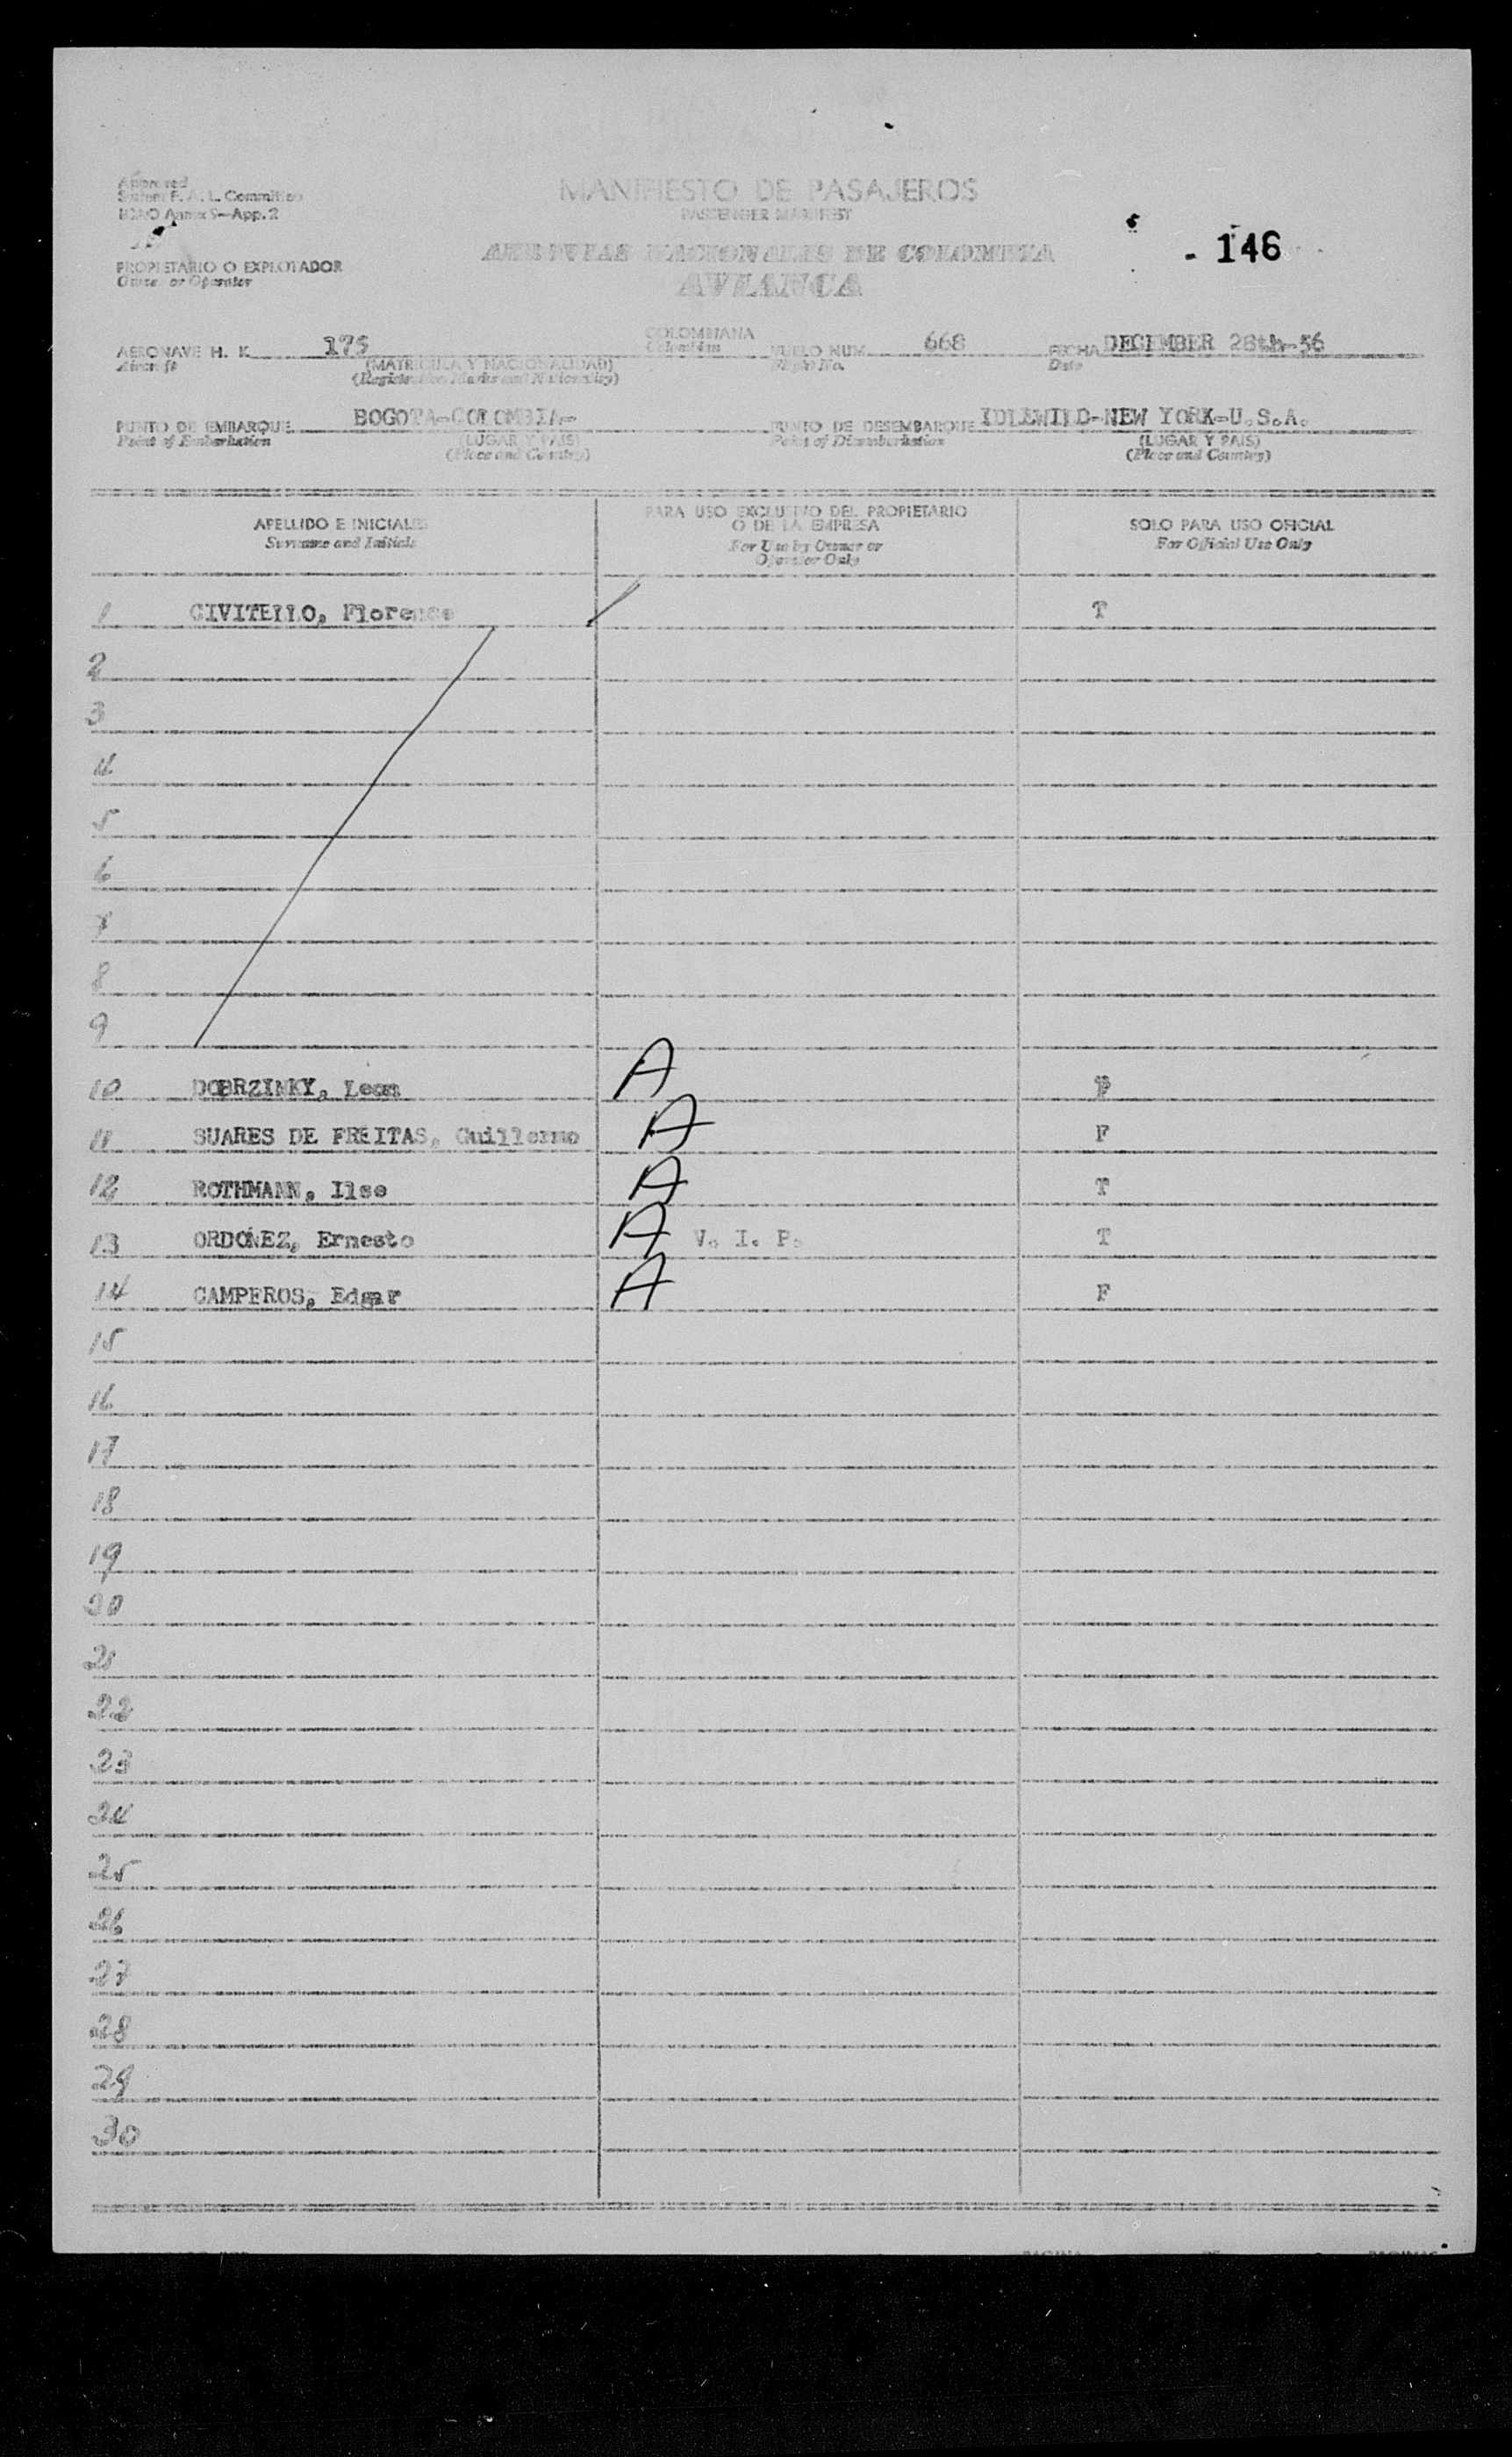 Approved
System F. A. L. Committee
ICAO Annex 9—App. 2
MANIFIESTO DE PASAJEROS
PASSENGER MANIFEST
- 146
AEROVIAS NACIONALES DE COLOMBIA
AVIANCA
PROPIETARIO O EXPLOTADOR
Owner or Operator
AERONAVE H. K. 175 COLOMBIANA VUELO NUM. 668 FECHA DECEMBER 28th-56
Aircraft (MATRICULA Y NACIONALIDAD) Colombian Flight No. Date
(Registration Marks and Nationality)
PUNTO DE EMBARQUE BOGOTA-COLOMBIA- PUNTO DE DESEMBARQUE IDLEWILD-NEW YORK-U.S.A.
Point of Embarkation (LUGAR Y PAIS) Point of Disembarkation (LUGAR Y PAIS)
(Place and Country) (Place and Country)
APELLIDO E INICIALES PARA USO EXCLUSIVO DEL PROPIETARIO O DE LA EMPRESA SOLO PARA USO OFICIAL
Surname and Initials For Use by Owner or Operator Only For Official Use Only
1 CIVITELLO, Florence T
2
3
4
5
6
7
8
9
10 DOBRZINKY, Leon A
11 SUARES DE FREITAS, Guillermo A F
12 ROTHMANN, Ilse A T
13 ORDOÑEZ, Ernesto A V. I. P. T
14 CAMPEROS, Edgar A F
15
16
17
18
19
20
21
22
23
24
25
26
27
28
29
30